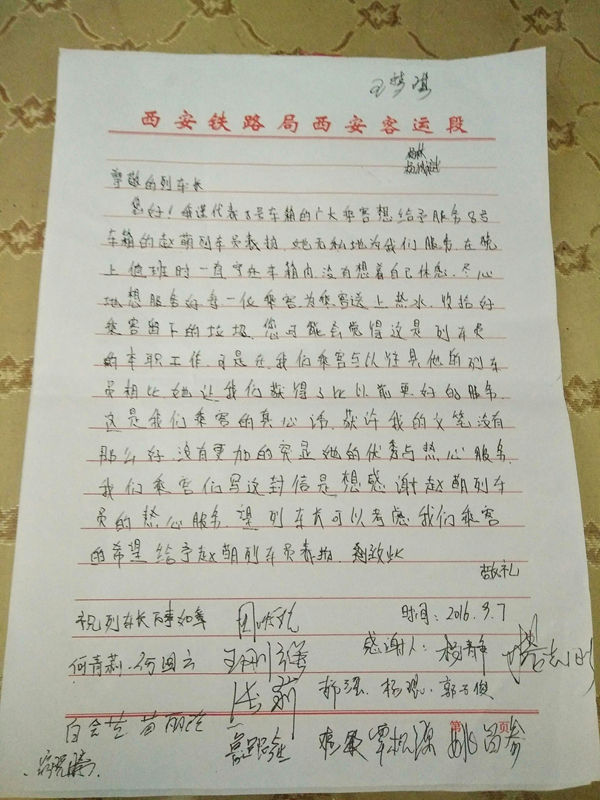 西安铁路局西安客运段
尊敬的列车长
您好！我谨代表8号车箱的广大乘客想给予服务8号
车箱的赵萌列车员表扬，她无私地为我们服务，在晚
上值班时一直守在车箱内，没有想着自己休息，尽心
地想服务好每一位乘客，为乘客送上热水，收拾好
乘客留下的垃圾，您可能会觉得这是列车员
的本职工作，可是在我们乘客与以往其他的列车
员相比，她让我们获得了比以前更好的服务，
这是我们乘客的真心话，或许我的文笔没有
那么好，没有更加的突显她的优秀与热心服务，
我们乘客们写这封信是想感谢赵萌列车
员的热心服务，望列车长可以考虑我们乘客
的希望给予赵萌列车员表扬，致此
敬礼
祝列车长万事如意
时间：2016.9.7
感谢人：杨青静
何青莉
郝强、杨琨、郭子俊
张莉
苗丽
第 页